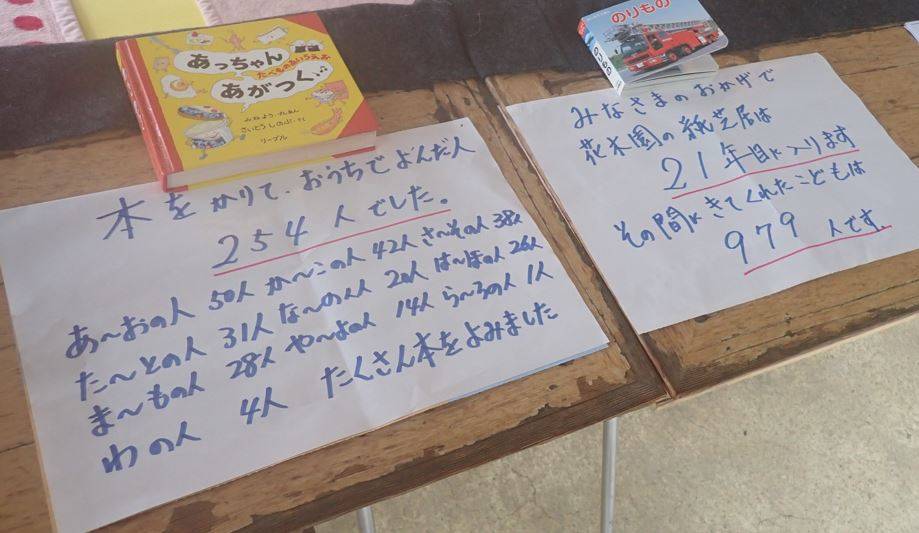 あっちゃん
たべものあいうえお
あがつく
みねよう げんあん
さいとう しのぶ さく
リーブル
本をかりて、おうちでよんだ人
254人でした。
あ〜おの人 50人 か〜この人 42人 さ〜その人 38人
た〜との人 31人 な〜のの人 20人 は〜ほの人 26人
ま〜もの人 28人 や〜よの人 14人 ら〜ろの人 1人
わの人 4人 たくさん本をよみました
のりもの
のりもの
みなさまのおかげで
花木園の紙芝居は
21年目に入ります
その間にきてくれたこどもは
979人です。